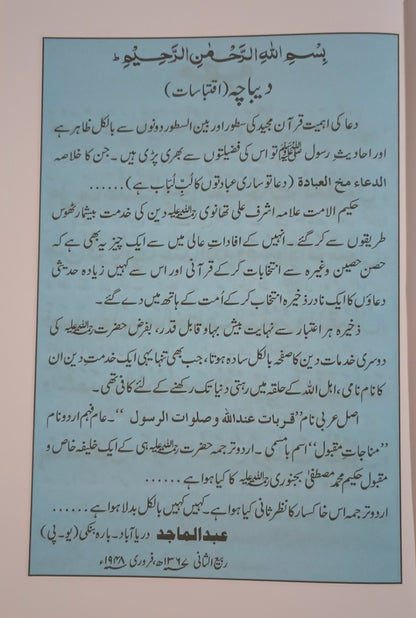 بِسْمِ اللهِ الرَّحْمٰنِ الرَّحِيْمِ ط
دیباچہ (اقتباسات)
دعا کی اہمیت قرآن مجید کی سطور اور بین السطور دونوں سے بالکل ظاہر ہے
اور احادیثِ رسول ﷺ تو اس کی فضیلتوں سے بھری پڑی ہیں۔ جن کا خلاصہ
الدعاء مخ العبادة (دعا تو ساری عبادتوں کا لُبِّ لُباب ہے)......
حکیم الامت علامہ اشرف علی تھانوی رحمۃ اللہ علیہ دین کی خدمت بیشمار ٹھوس
طریقوں سے کر گئے۔ انہیں کے افاداتِ عالی میں سے ایک چیز یہ بھی ہے کہ
حصن حصین وغیرہ سے انتخابات کر کے قرآنی اور اس سے کہیں زیادہ حدیثی
دعاؤں کا ایک نادر ذخیرہ انتخاب کر کے اُمت کے ہاتھ میں دے گئے۔
ذخیرہ ہر اعتبار سے نہایت بیش بہا و قابل قدر، بفرض حضرت رحمۃ اللہ علیہ کی
دوسری خدمات دین کا صفحہ بالکل سادہ ہوتا، جب بھی تنہا یہی ایک خدمتِ دین ان
کا نام نامی، اہل اللہ کے حلقہ میں رہتی دنیا تک رکھنے کے لئے کافی تھی۔
اصل عربی نام ”قربات عندالله و صلوات الرسول“۔ عام فہم اردو نام
”مناجاتِ مقبول“ اسم با مسمی۔ اردو ترجمہ حضرت رحمۃ اللہ علیہ ہی کے ایک خلیفہ خاص و
مقبول حکیم محمد مصطفیٰ بجنوری رحمۃ اللہ علیہ کا کیا ہوا ہے......
اردو ترجمہ اس خاکسار کا نظر ثانی کیا ہوا ہے۔ کہیں کہیں بالکل بدلا ہوا ہے......
عبدالماجد دریاآباد۔ بارہ بنکی (یو۔پی)
ربیع الثانی ۱۳۶۷ھ، فروری ۱۹۴۸ء